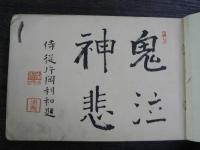 鬼泣
神悲
侍從片岡利和題